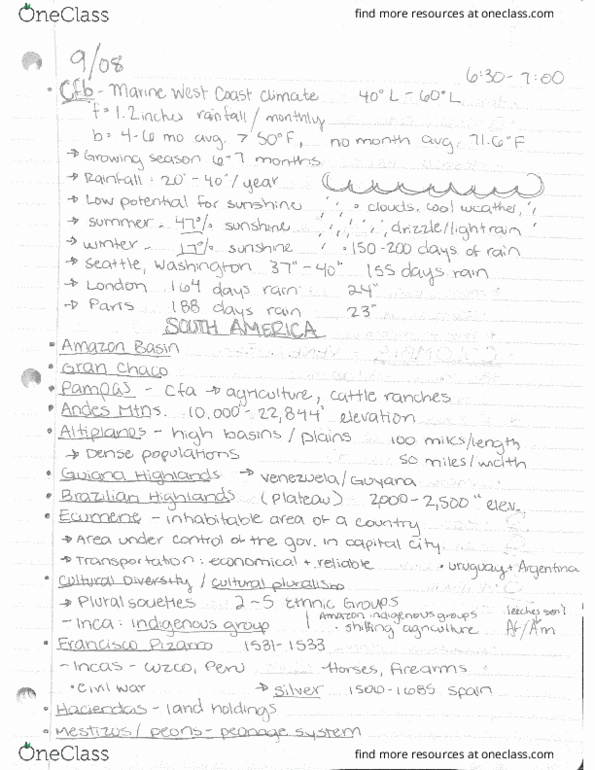 OneClass find more resources at oneclass.com
9/08 6:30-7:00
• Cfb - Marine West Coast Climate 40° L - 60° L
f = 1.2 inches rainfall / monthly
b = 4-6 mo avg. > 50°F, no month avg. 71.6°F
→ Growing season 6-7 months
→ Rainfall: 20" - 40"/year
→ Low potential for sunshine clouds, cool weather,
→ summer - 47% sunshine drizzle/light rain
→ winter - 17% sunshine 150-200 days of rain
→ Seattle, Washington 37" - 40" 155 days rain
→ London 164 days rain 24"
→ Paris 188 days rain 23"
SOUTH AMERICA
• Amazon Basin
• Gran Chaco
• Pampas - Cfa → agriculture, cattle ranches
• Andes Mtns. 10,000' - 22,844' elevation
• Altiplanos - high basins / plains 100 miles/length
→ Dense populations 50 miles/width
• Guiana Highlands → Venezuela/Guyana
• Brazilian Highlands (Plateau) 2,000 - 2,500" elev.
• Ecumene - inhabitable area of a country
→ Area under control of the gov. in capital city.
→ Transportation: economical + reliable • Uruguay + Argentina
• Cultural Diversity / cultural pluralism
→ Plural societies 2-5 Ethnic Groups
- Inca: indigenous group Amazon indigenous groups
- shifting agriculture Af/Am
• Francisco Pizarro 1531-1533
- Incas - Cuzco, Peru Horses, firearms
• Civil war → Silver 1500-1685 Spain
• Haciendas - land holdings
• Mestizos / peons - peonage system
OneClass find more resources at oneclass.com